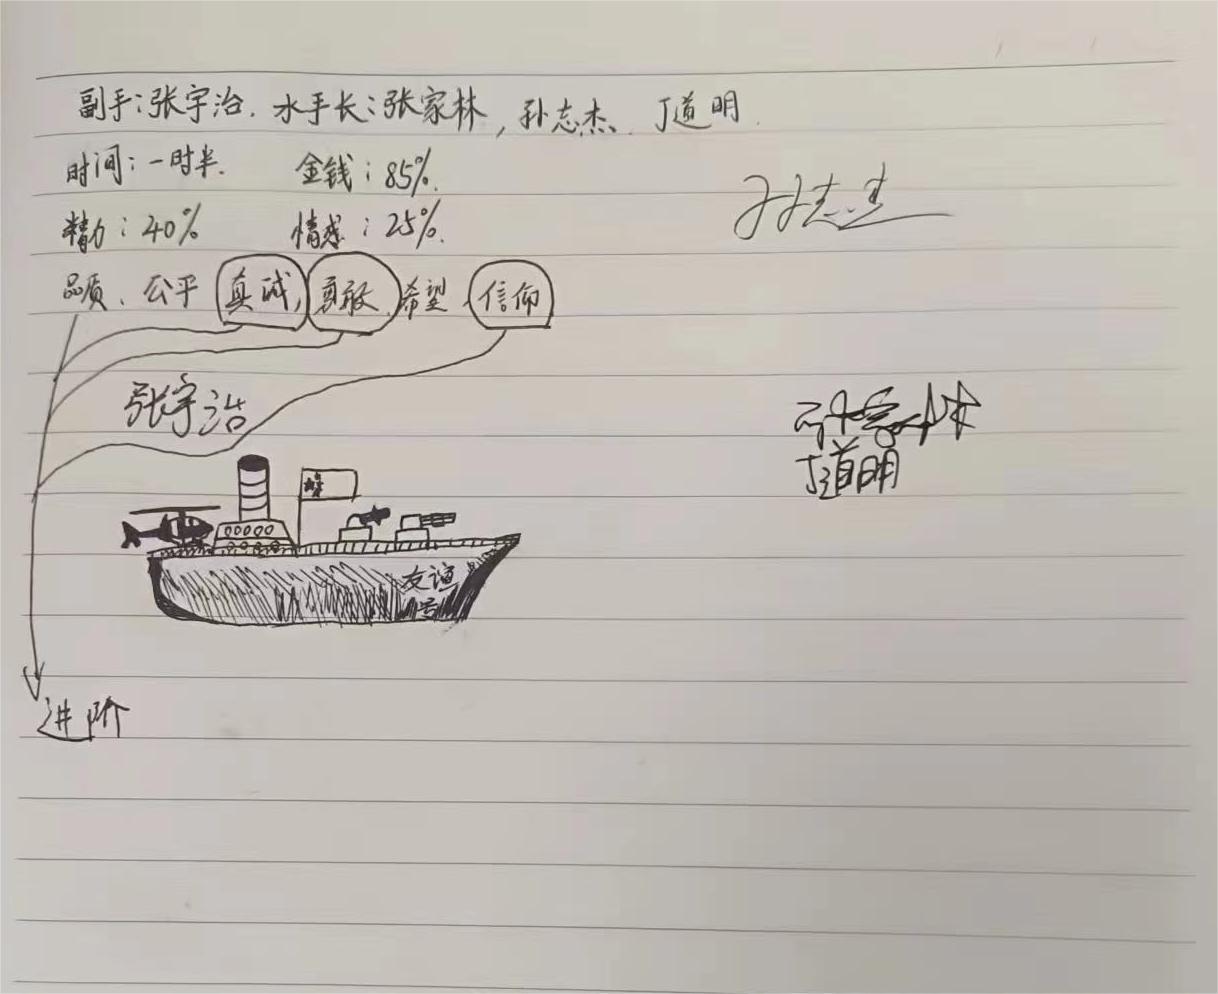 副手：张宇治. 水手长：张家林，孙志杰. 丁道明.
时间：一时半. 金钱：85%.
精力：40% 情感：25%.
品质、公平 真诚，勇敢、希望、信仰
孙志杰
张宇治
张家林
丁道明
友谊
号
进阶